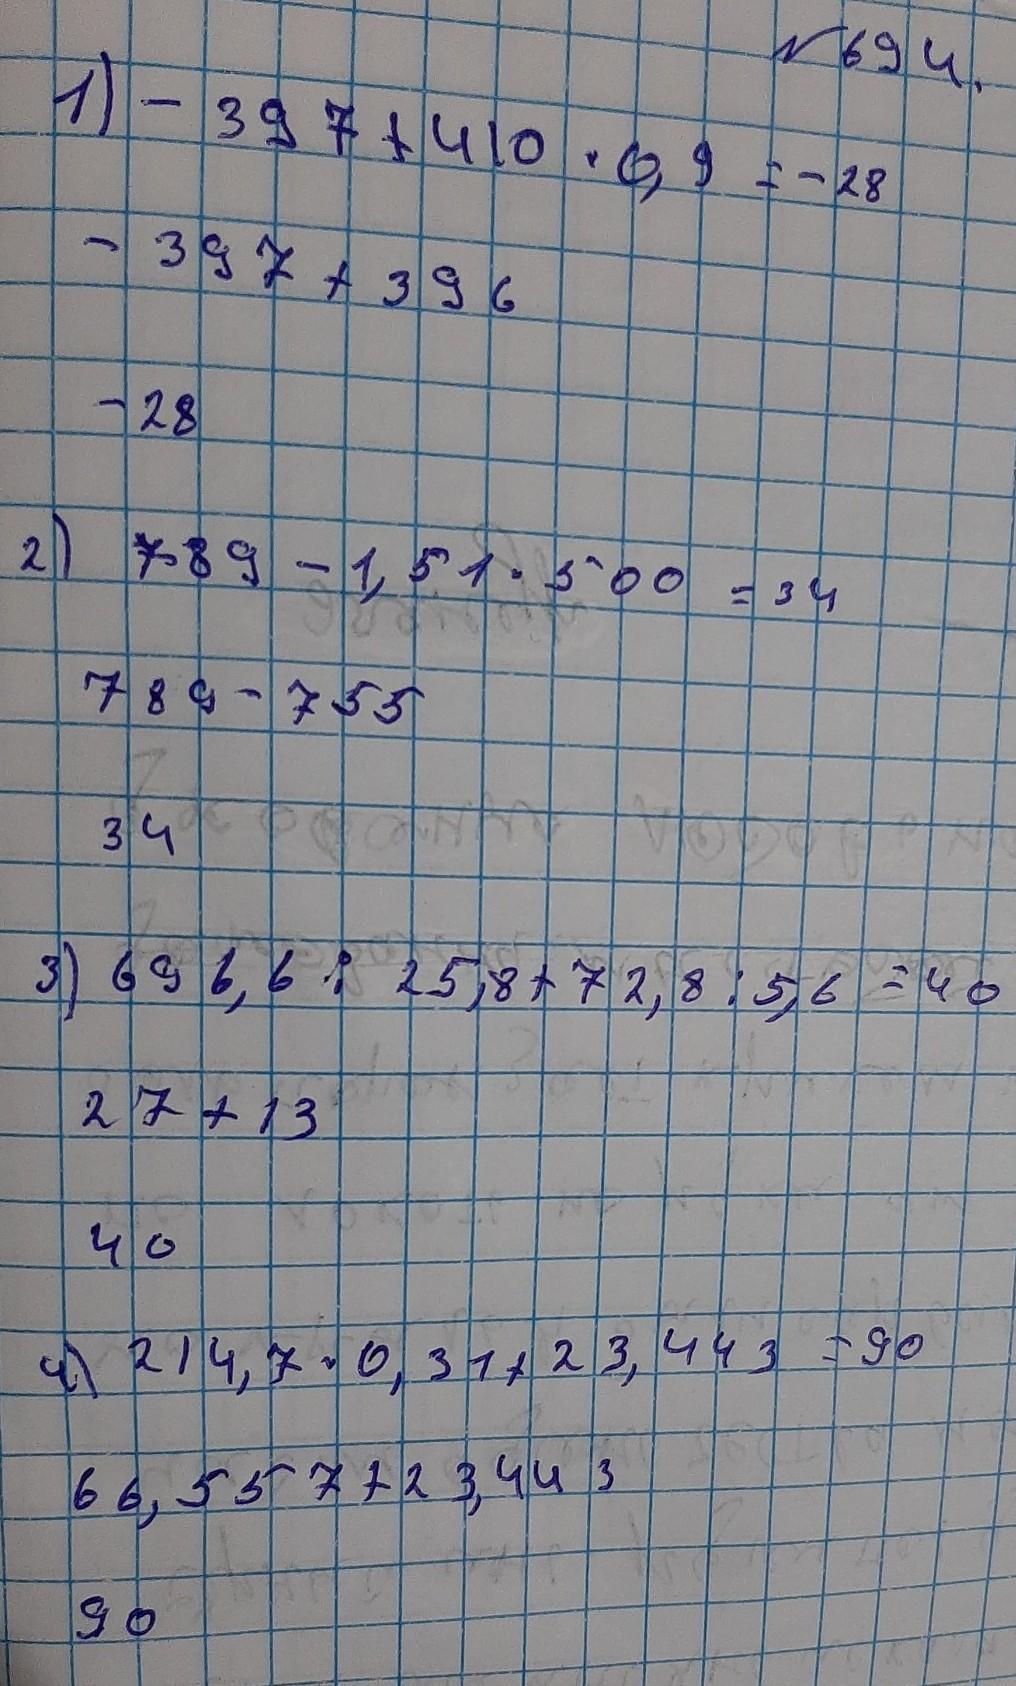 №694.
1) - 397 + 410 · 0,9 = -28
- 397 + 396
- 28
2) 789 - 1,51 · 500 = 34
789 - 755
34
3) 696,6 : 25,8 + 72,8 : 5,6 = 40
27 + 13
40
4) 214,7 · 0,31 + 23,443 = 90
66,557 + 23,443
90